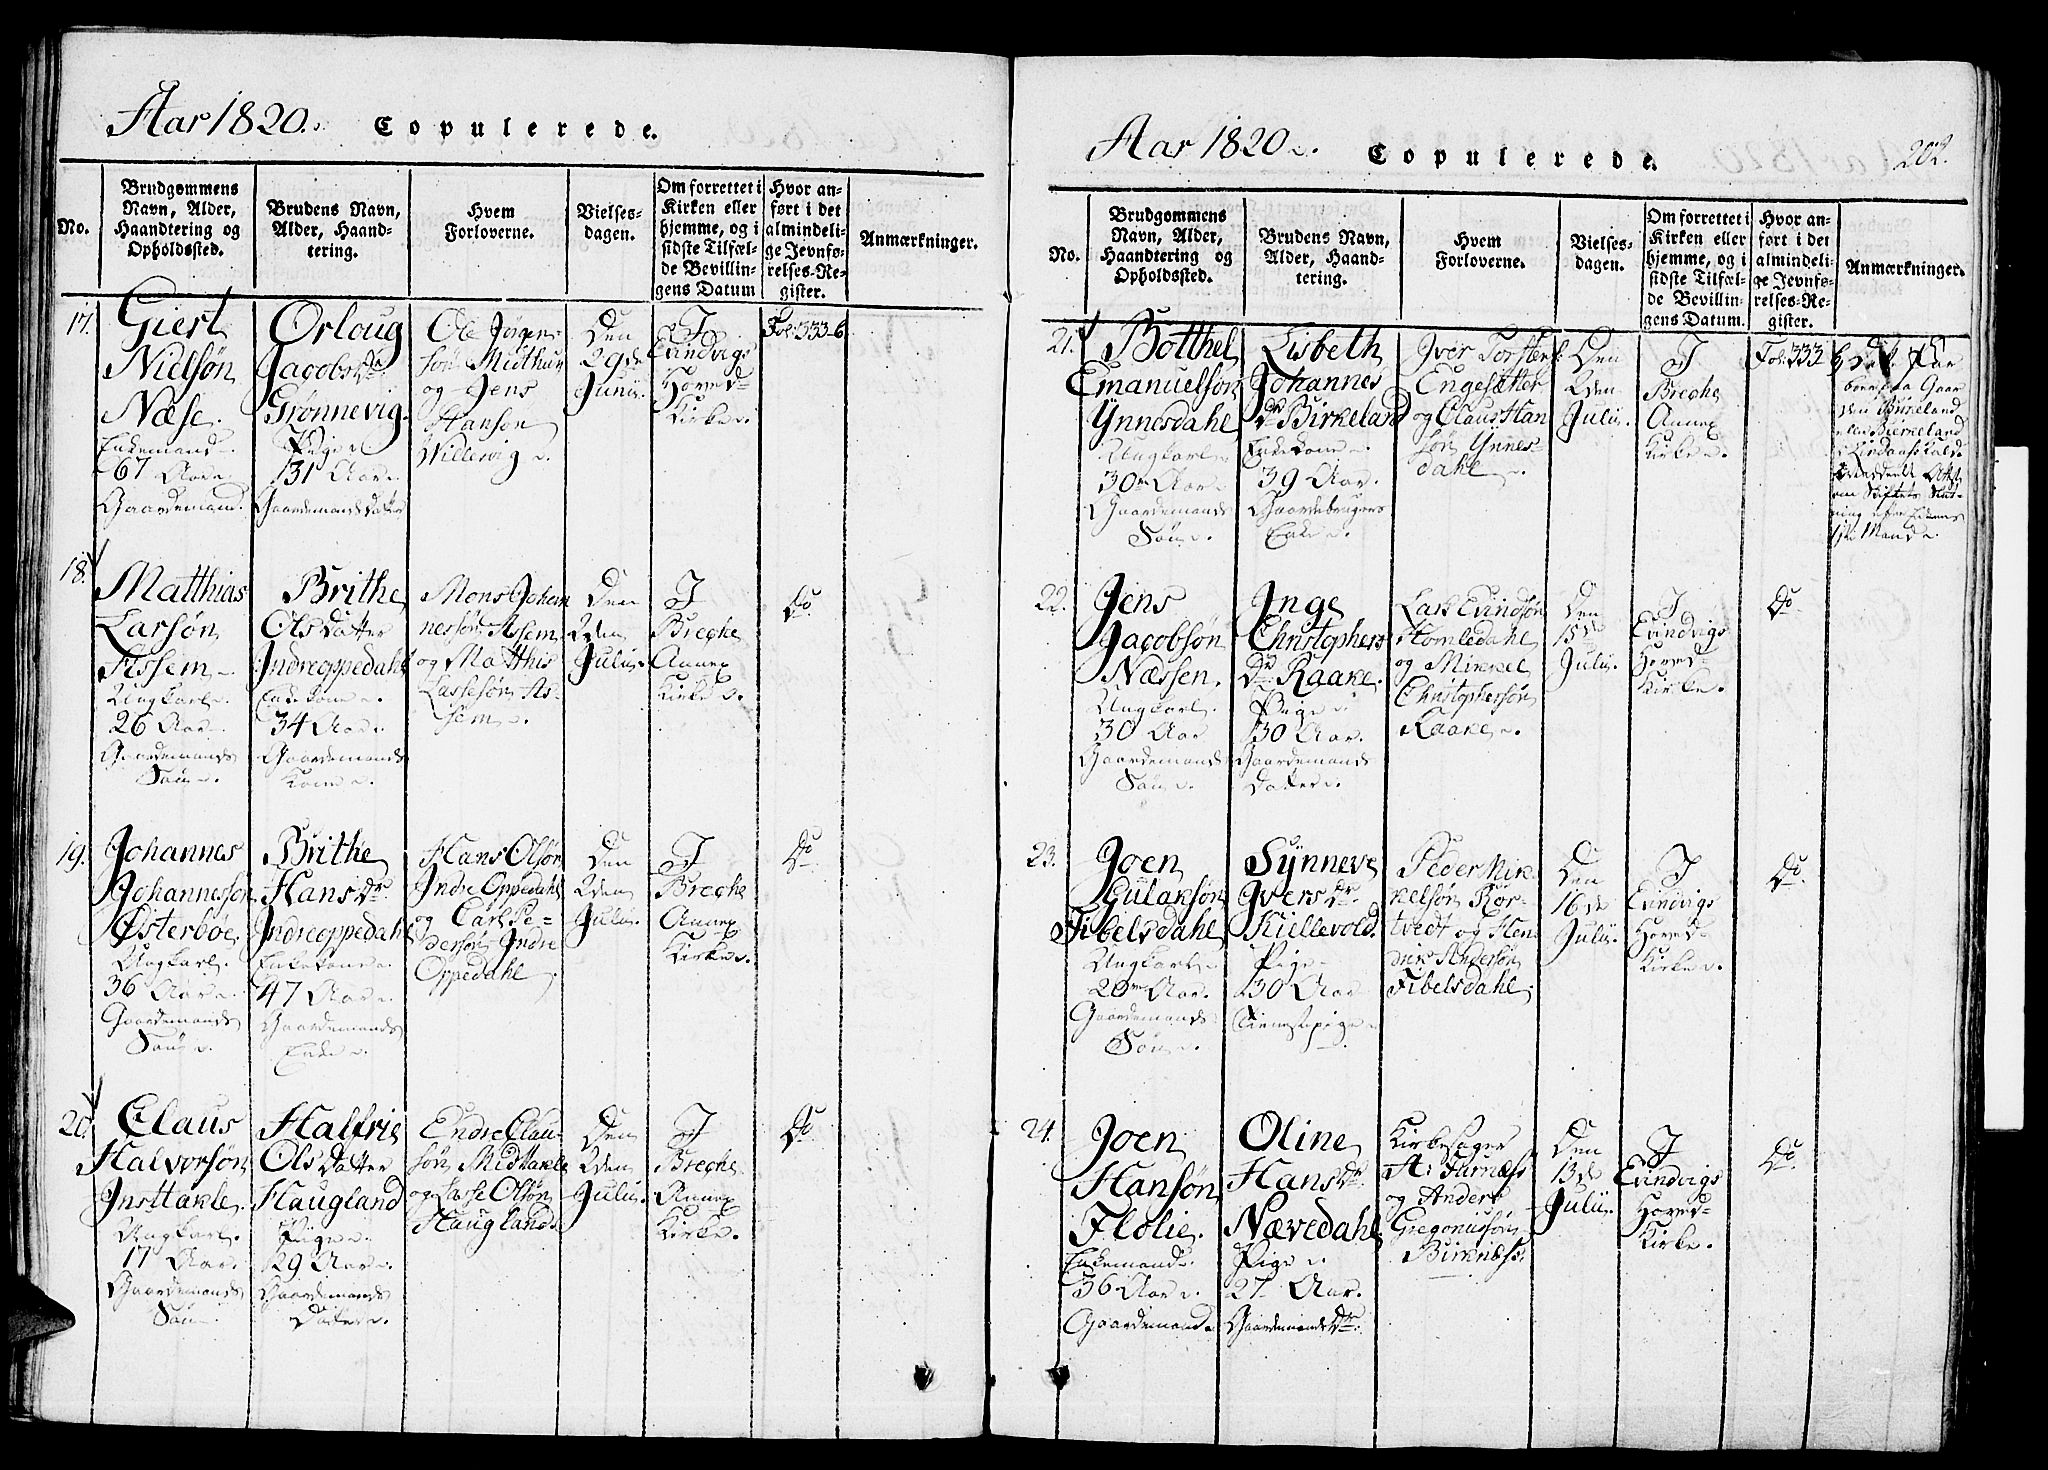 Aar 1820.
Copulerede.
No.
Brudgommens
Navn, Alder,
Haandtering og
Opholdssted.
Brudens Navn,
Alder, Haand-
tering.
Hvem
Forloverne.
Vielses-
dagen.
Om forrettet i
Kirken eller
hjemme, og i
sidste Tilfæl-
de Bevillin-
gens Datum
Hvor an-
ført i det
almindeli-
ge Jevnfø-
relses-Re-
gister.
Anmærkninger.
17.
Giert
Nielsøn
Næse.
Enkemand
67 Aar
Gaardemand.
Orloug
Jacobs Dr
Grønnevig.
Pige
31 Aar
Gaardemands datter
Ole Jørgen
søn Midthun
og Jens
Hansøn
Willevig
Den
29de
Junii.
I
Evindvigs
Hoved-
Kirke
Fol: 333-6.
18.
Matthias
Larsøn
Assem
Ungkarl.
26 Aar
Gaardemands
Søn
Brithe
Olsdatter
Indreoppedahl
Enkekone
34 Aar
Gaardemands
Kone
Mons Johan
nessøn Assem
og Matthis
Lassesøn As-
sem
Den
2den
Julii.
I
Breche
Annex
Kirke
Do
19.
Johannes
Johannessøn
Østerbøe.
Ungkarl.
36 Aar
Gaardemands
Søn
Brithe
Hans Dr.
Indreoppedahl
Enkekone
47 Aar
Gaardemands
Enke
Hans Olsøn
Indre Oppedahl
og Carl Pe-
dersøn Indre
Oppedahl
Den
2den
Julii.
I
Breche
Annex
Kirke
Do
20.
Claus
Halvorsøn
Insttakle.
Ungkarl.
17 Aar.
Gaardemands
Søn
Halfrie
Olsdatter
Haugland
Pige
29 Aar
Gaardemands
Datter
Endre Clau-
søn Midttakle
og Lasse Olsøn
Haugland
Den
2den
Julii.
I
Breche
Annex
Kirke.
Do
Aar 1820.
Copulerede.
202.
No.
Brudgommens
Navn, Alder,
Haandtering og
Opholdssted.
Brudens Navn,
Alder, Haand-
tering.
Hvem
Forloverne.
Vielses-
dagen.
Om forrettet i
Kirken eller
hjemme, og i
sidste Tilfæl-
de Bevillin-
gens Datum.
Hvor an-
ført i det
almindeli-
ge Jevnfø-
relses-Re-
gister.
Anmærkninger.
21.
Botthel
Emanuelsøn
Ynnesdahl
Ungkarl
30 Aar
Gaardemands
Søn
Lisbeth
Johannes
Dr Birkeland
Enkekone
39 Aar.
Gaardebrugers
Enke
Iver Torstens:
Engesætter
og Claus Han
søn Ynnes-
dahl
Den
2den
Julii.
I
Breche
Annex
Kirke
Fol: 333
Par
boer paa Gaar
den Birkeland
Birkeland
Attest
om Skiftets Slut-
ning efter Enkens
Mand
22.
Jens
Jacobsøn
Næssen.
Ungkarl.
30 Aar
Gaardemands
Søn
Inge
Christophers
Dr Raake.
Pige
30 Aar.
Gaardemands
Datter
Lars Evindsøn
Homledahl
og Mikkel
Christophersøn
Raake
Den
15de
Julii.
I
Evindvigs
Hoved-
Kirke.
Do
23.
Joen
Gulaksøn
Fibelsdahl
Ungkarl
20 Aar.
Gaardemands
Søn
Synneve
Ivers Dr.
Kiellevold.
Pige
30 Aar
Tienestepige
Peder Mik
kelsøn Kor-
tvedt og Hen
drik Andersøn
Fibelsdahl.
Den
16de
Julii.
I
Evindvigs
Hoved-
Kirke
Do.
24.
Joen
Hansøn
Flolie.
Enkemand
36 Aar
Gaardemand
Oline
Hans Dr
Nævedahl
Pige
27 Aar.
Gaardemands Dr.
Kirkesanger
A: Furnæss
og Anders
Gregoriussøn
Birknæss.
Den
13de
Julii.
I
Evindvigs
Hoved-
Kirke.
Do.